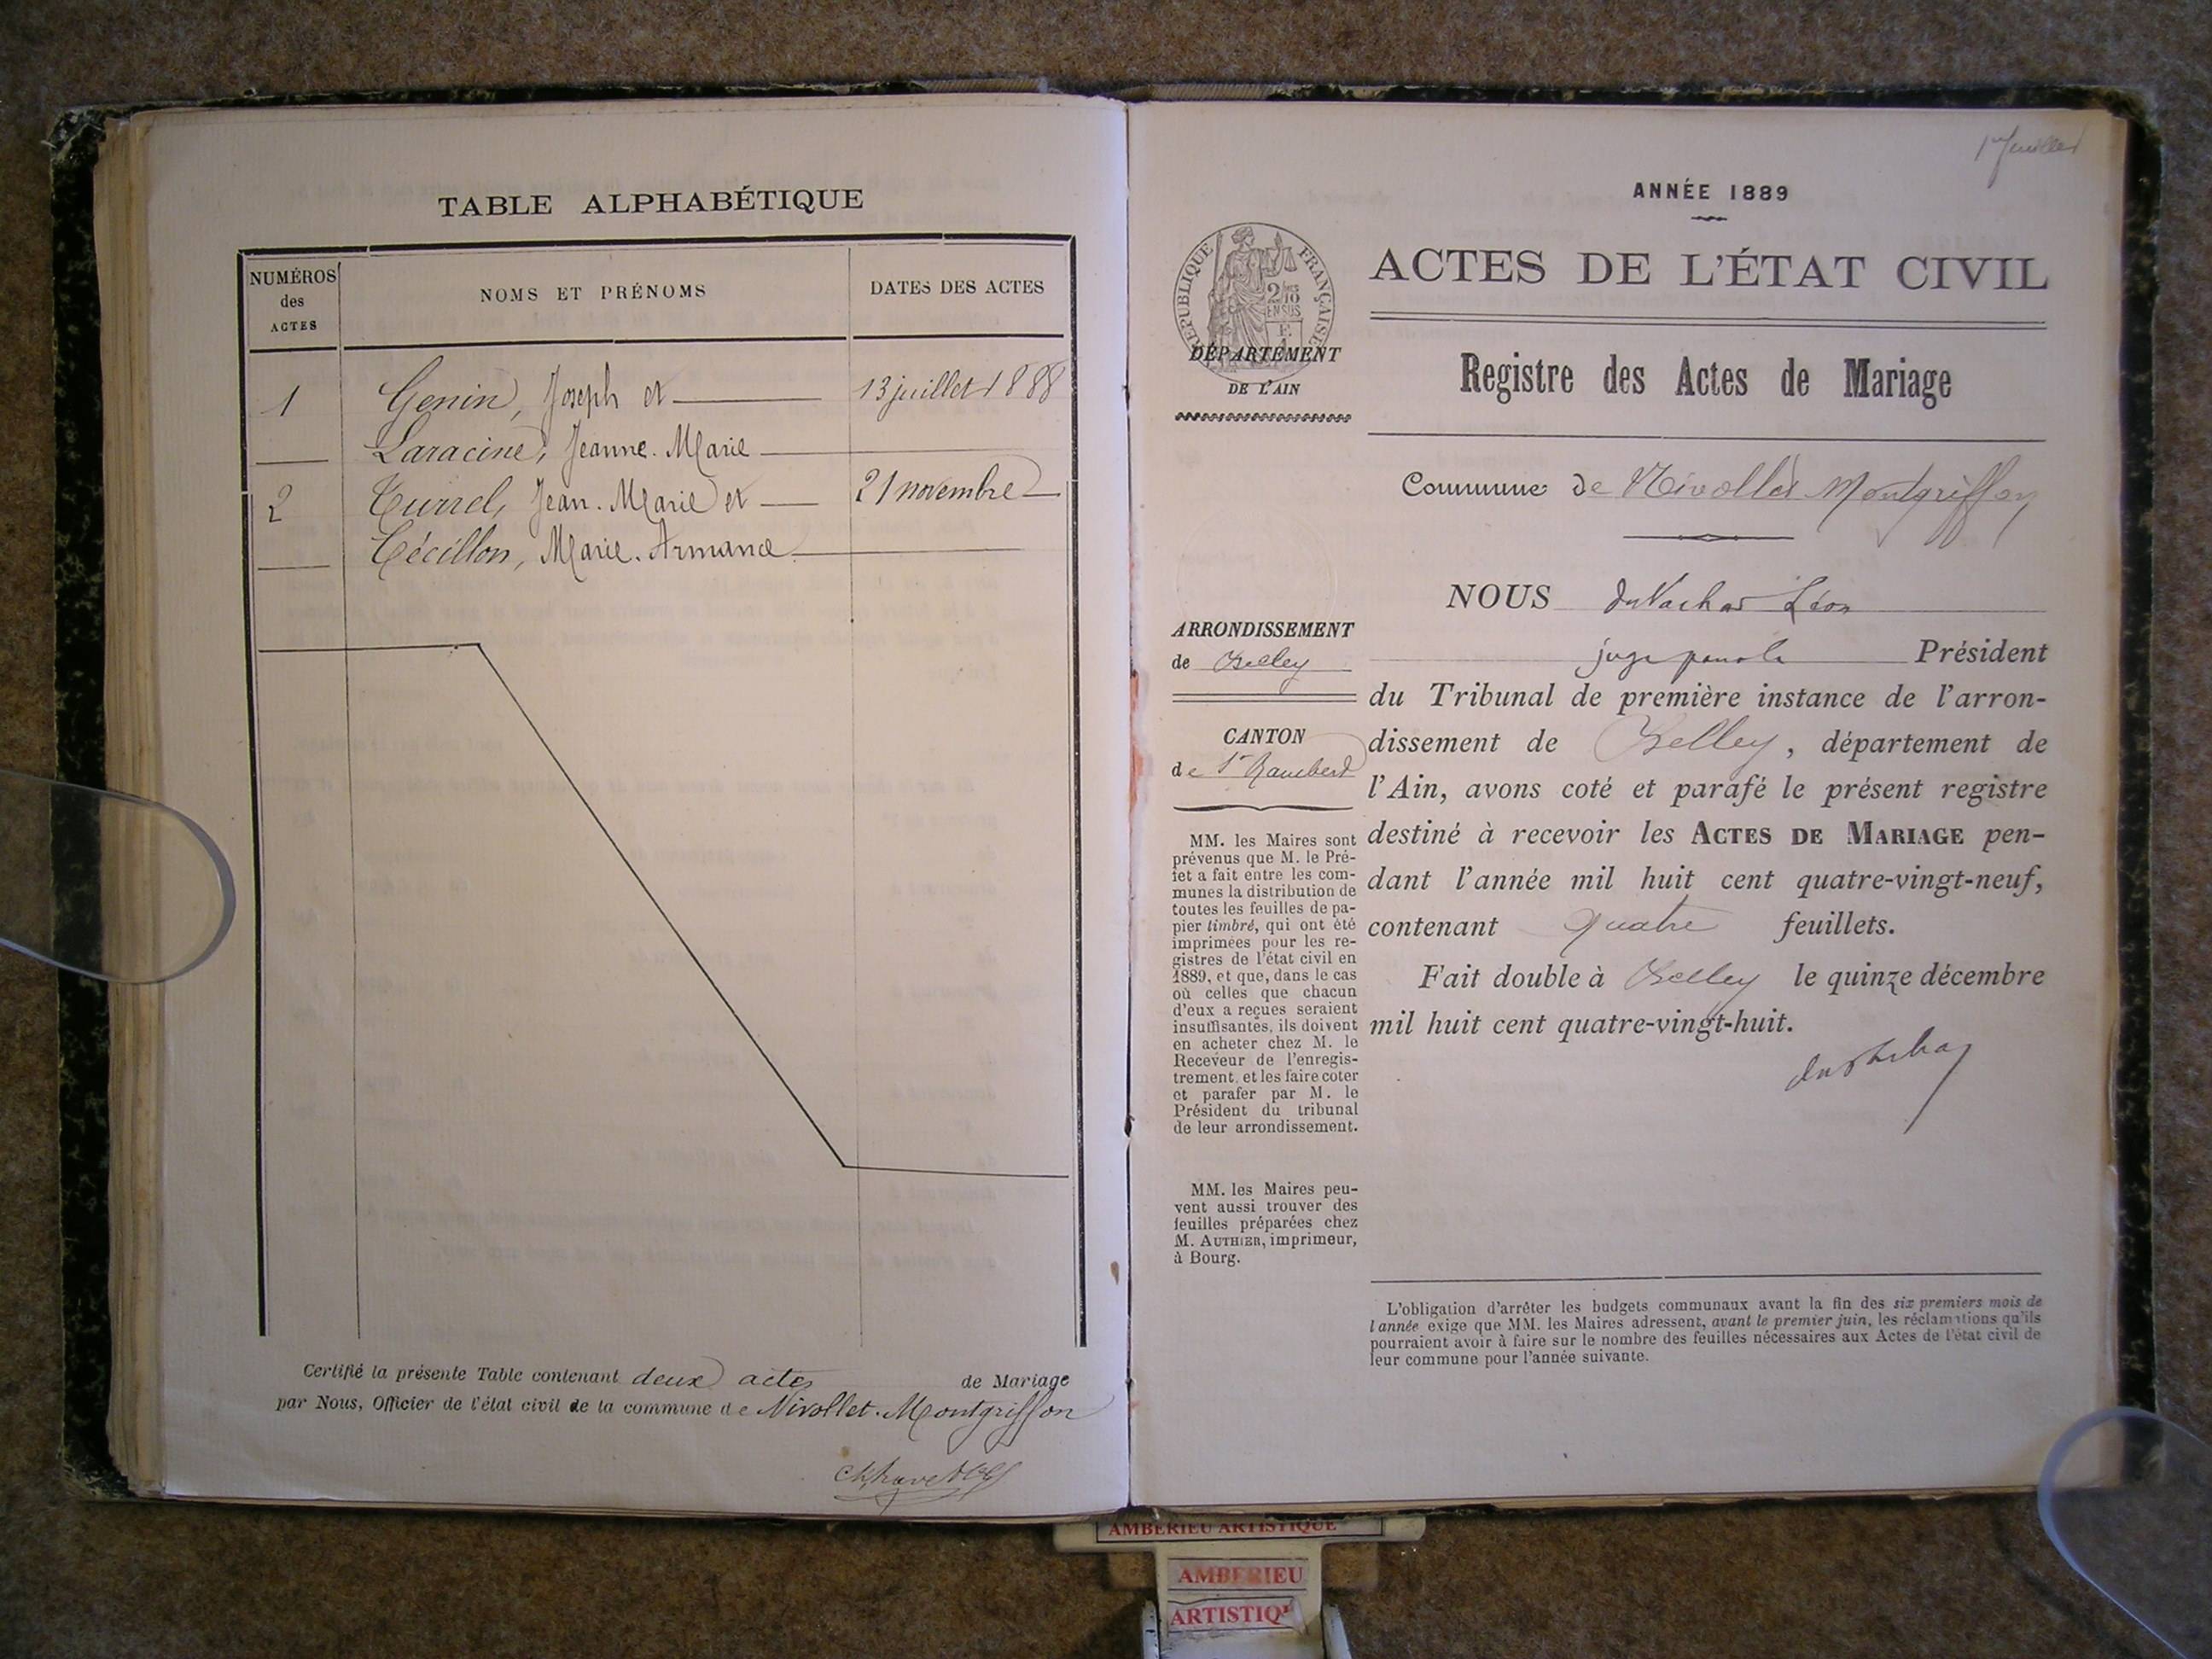 TABLE ALPHABÉTIQUE
NUMÉROS
des
ACTES
NOMS ET PRÉNOMS
DATES DES ACTES
1 Genin, Joseph et 13 juillet 1888
Laracine, Jeanne-Marie
2 Turrel, Jean-Marie et 21 novembre
Cécillon, Marie-Armance
Certifié la présente Table contenant deux actes de Mariage
par Nous, Officier de l'état civil de la commune de Nivollet-Montgriffon
1er feuillet
ANNÉE 1889
ACTES DE L'ÉTAT CIVIL
RÉPUBLIQUE FRANÇAISE
2/10
EN SUS
DÉPARTEMENT
DE L'AIN
Registre des Actes de Mariage
Commune de Nivollet Montgriffon
NOUS Léon
ARRONDISSEMENT
de Belley
juge pour le Président
du Tribunal de première instance de l'arron-
CANTON
de St Rambert
dissement de Belley, département de
l'Ain, avons coté et parafé le présent registre
destiné à recevoir les ACTES DE MARIAGE pen-
dant l'année mil huit cent quatre-vingt-neuf,
contenant quatre feuillets.
Fait double à Belley le quinze décembre
mil huit cent quatre-vingt-huit.
MM. les Maires sont
prévenus que M. le Pré-
fet a fait entre les com-
munes la distribution de
toutes les feuilles de pa-
pier timbré, qui ont été
imprimées pour les re-
gistres de l'état civil en
1889, et que, dans le cas
où celles que chacun
d'eux a reçues seraient
insuffisantes, ils doivent
en acheter chez M. le
Receveur de l'enregis-
trement, et les faire coter
et parafer par M. le
Président du tribunal
de leur arrondissement.
MM. les Maires peu-
vent aussi trouver des
feuilles préparées chez
M. AUTHIER, imprimeur,
à Bourg.
L'obligation d'arrêter les budgets communaux avant la fin des six premiers mois de
l'année exige que MM. les Maires adressent, avant le premier juin, les réclamations qu'ils
pourraient avoir à faire sur le nombre des feuilles nécessaires aux Actes de l'état civil de
leur commune pour l'année suivante.
AMBERIEU ARTISTIQUE
AMBERIEU
ARTISTIQ